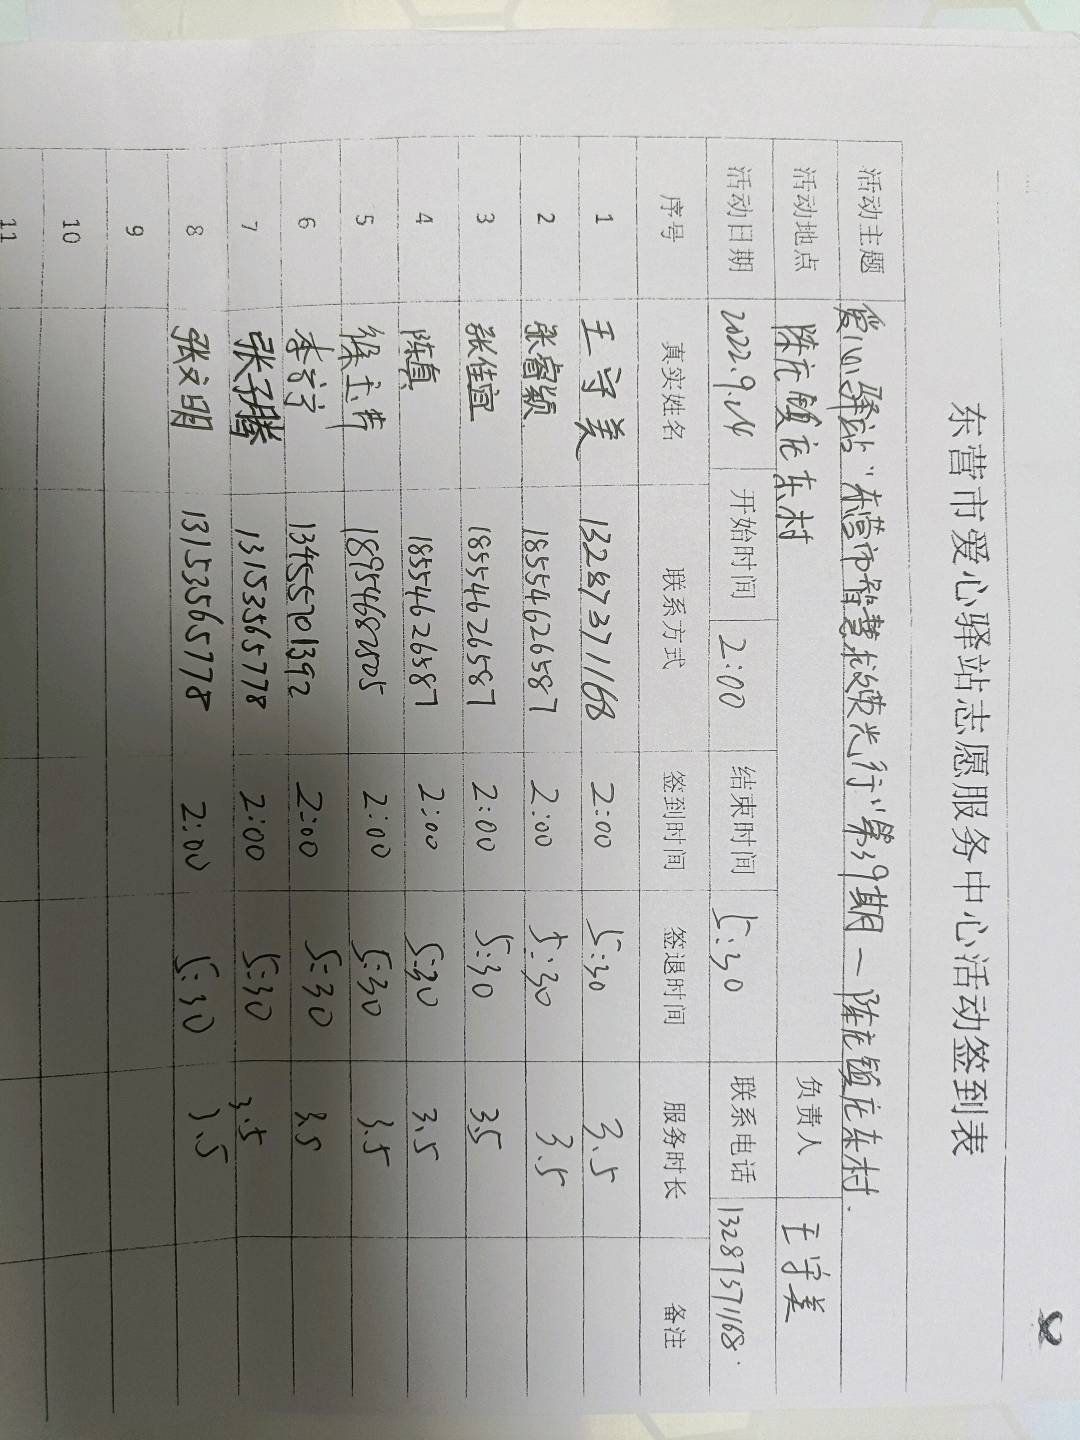 东营市爱心驿站志愿服务中心活动签到表
活动主题 爱心驿站"东营市智慧救荧光行"第39期一陈庄镇庄东村.
活动地点 陈庄镇庄东村 负责人 王守美
活动日期 2022.9.14 开始时间 2:00 结束时间 5:30 联系电话 13287371168.
序号 真实姓名 联系方式 签到时间 签退时间 服务时长 备注
1 王守美 13287371168 2:00 5:30 3.5
2 张睿颖 18554626587 2:00 5:30 3.5
3 张佳宜 18554626587 2:00 5:30 3.5
4 陈真 18554626587 2:00 5:30 3.5
5 18954682505 2:00 5:30 3.5
6 13455701392 2:00 5:30 3.5
7 张子腾 13153565778 2:00 5:30 3.5
8 张文明 13153565778 2:00 5:30 3.5
9
10
11